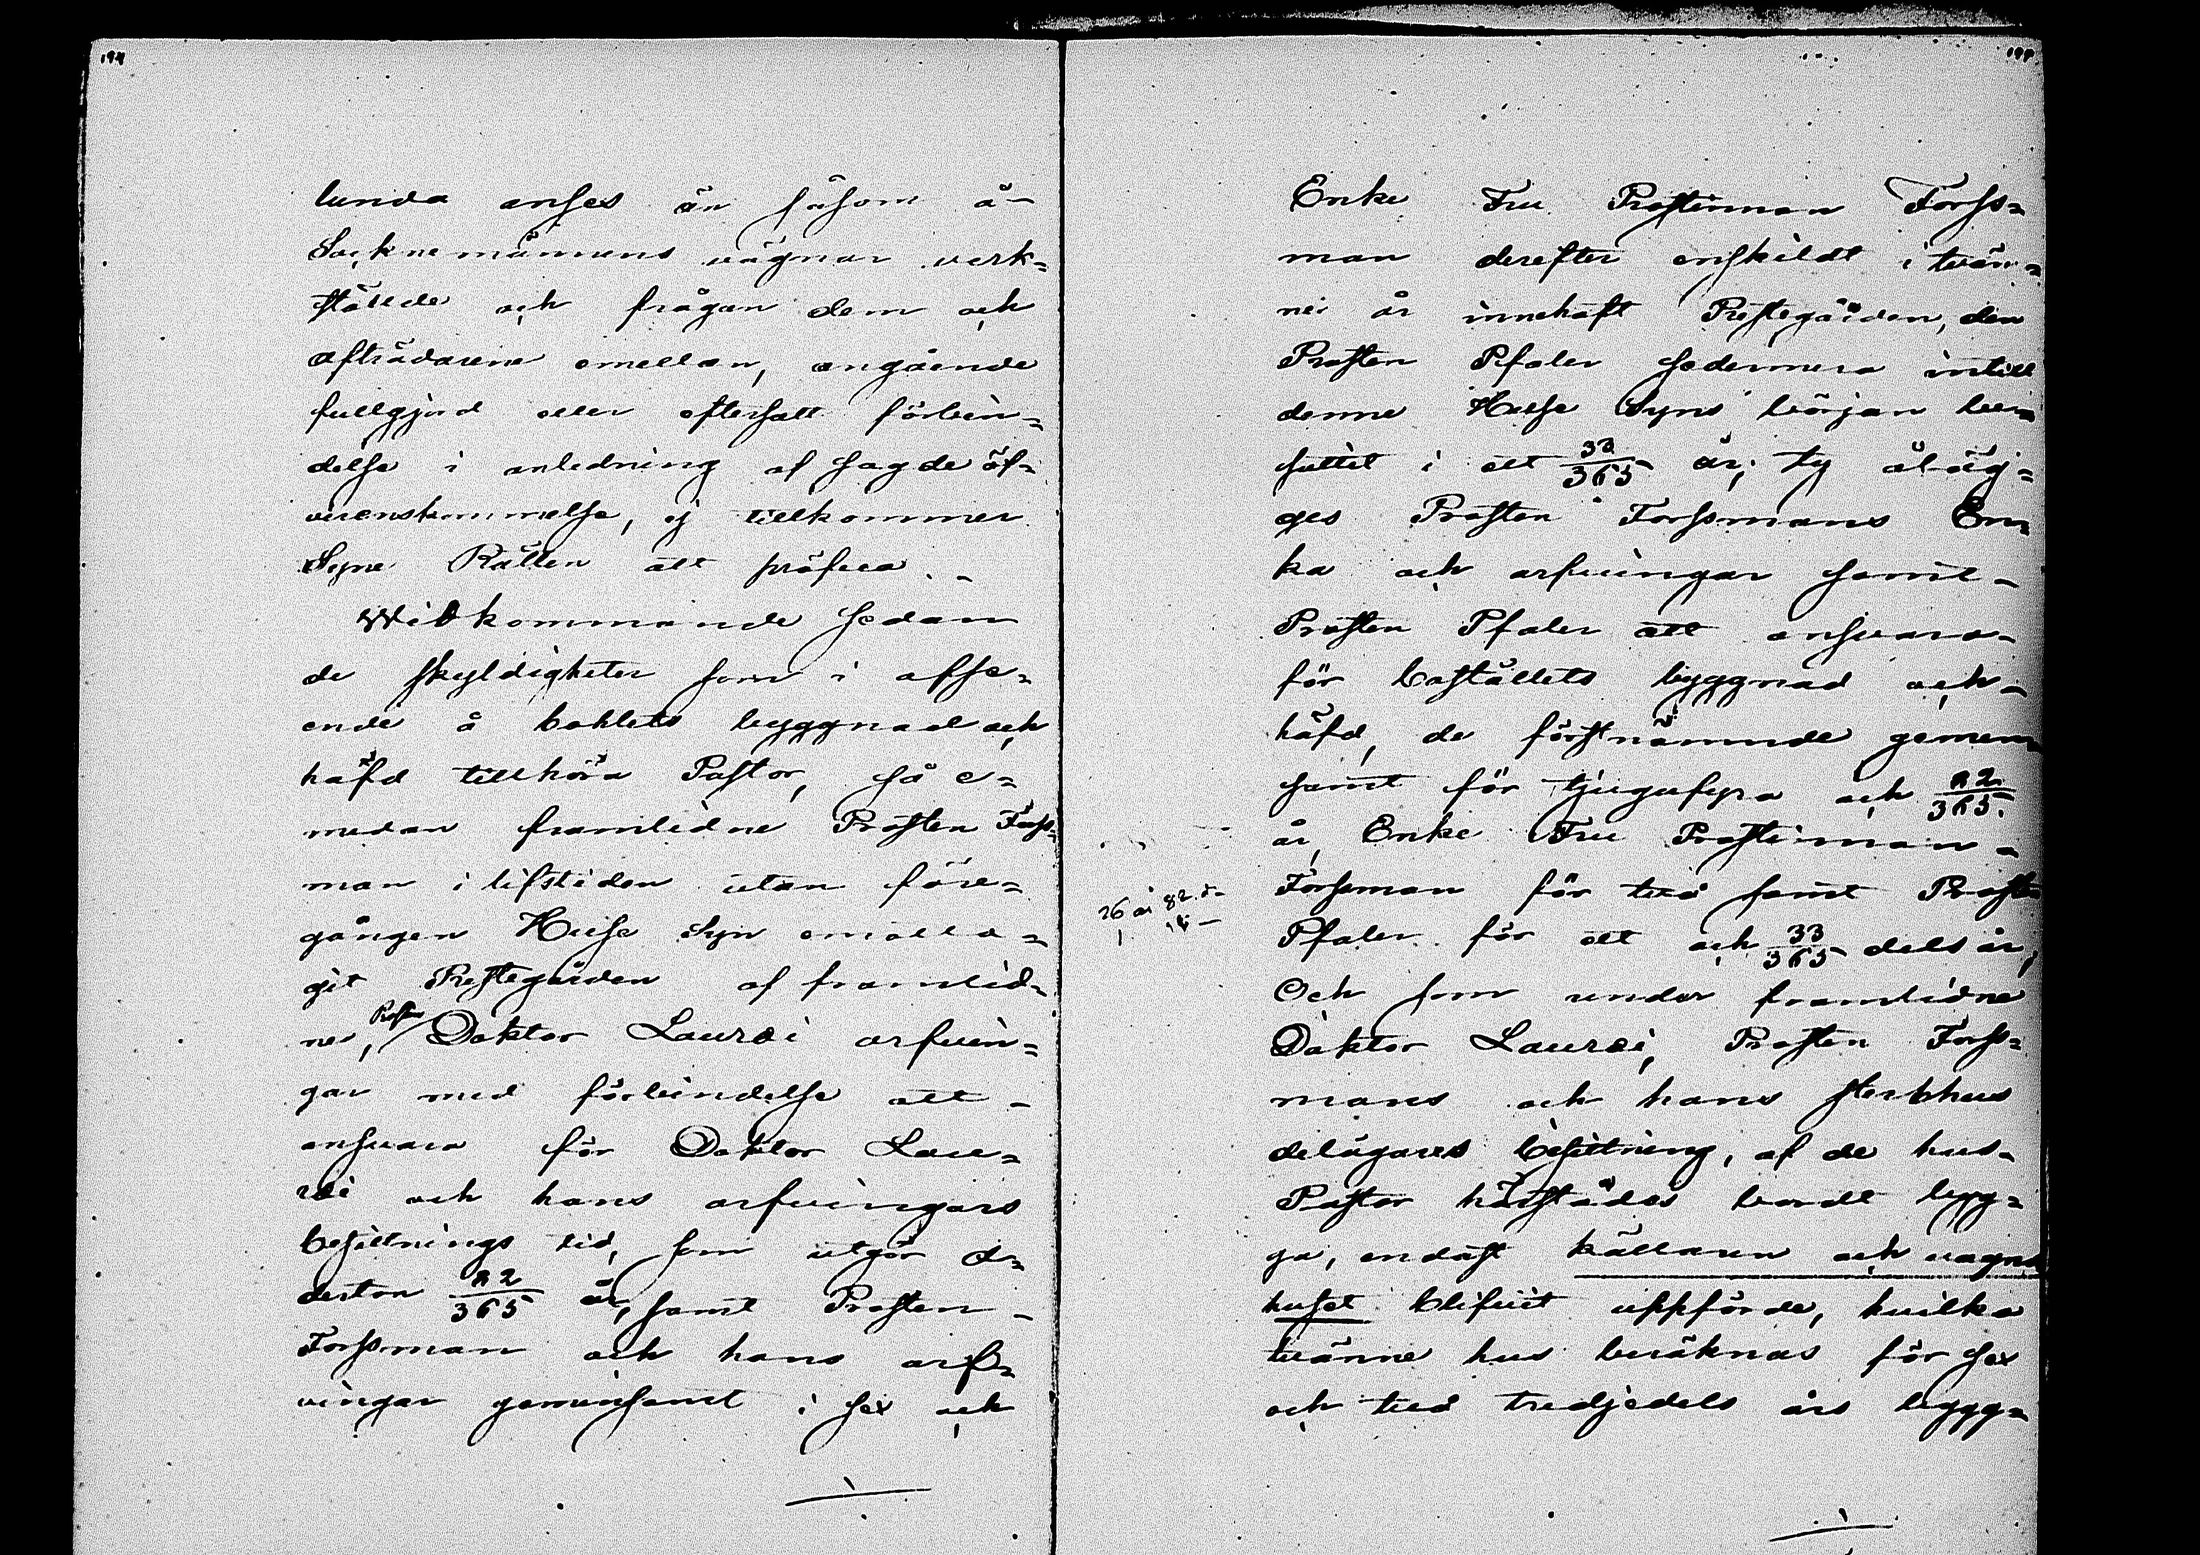 194
lunda anses än såsom å-
Socknemännens vägnar verk=
stälde och frågan dem och
afträdarene emellan, angående
fullgjord eller eftersatt förbin=
delse i anledning af sagde öf=
verenskommelse, ej tillkommer
Syne Rätten att pröfva. -
Widkommande sedan
de skyldigheter som i afse=
ende å bohlets byggnad och
häfd tillhöra Pastor, så e=
medan framlidne Prosten Forss=
man i lifstiden utan före=
gången Huse Syn emotta=
git Prestegården af framlid=
ne, Prosten Doktor Lauræi arfvin=
gar med förbindelse att -
ansvara för Doktor Lau=
ræi och hans arfvingars
besittnings tid, som utgör a=
derton 82/365 år, samt Prosten -
Forssman och hans arf=
vingar gemensamt i sex och
199
Enke Fru Prostinnan Forss=
man derefter enskildt i tvän=
ne år innehaft Prestegården, den
Prosten Pfaler sedermera intill
denne Huse Syns början be=
suttit i ett 33/365 år; ty åläg=
ges Prosten Forssmans En=
ka och arfvingar samt -
Prosten Pfaler att ansvara -
för Boställets byggnad och -
häfd, de förstnämnde gemen
samt för tjugufyra och 82/365
år, Enke Fru Prostinnan -
26 år 82. d.
Forssman för två samt Prosten
Pfaler för ett och 33/365 dels år,
Och som under framlidne
Doktor Lauræi, Prosten Forss=
mans och hans sterbhus
delägares besittning, af de hus -
Pastor härstädes bordt byg=
ga, endast källaren och vagns
huset blifvit uppförde, hvilka
tvänne hus beräknas för sex
och två tredjedels års bygg=